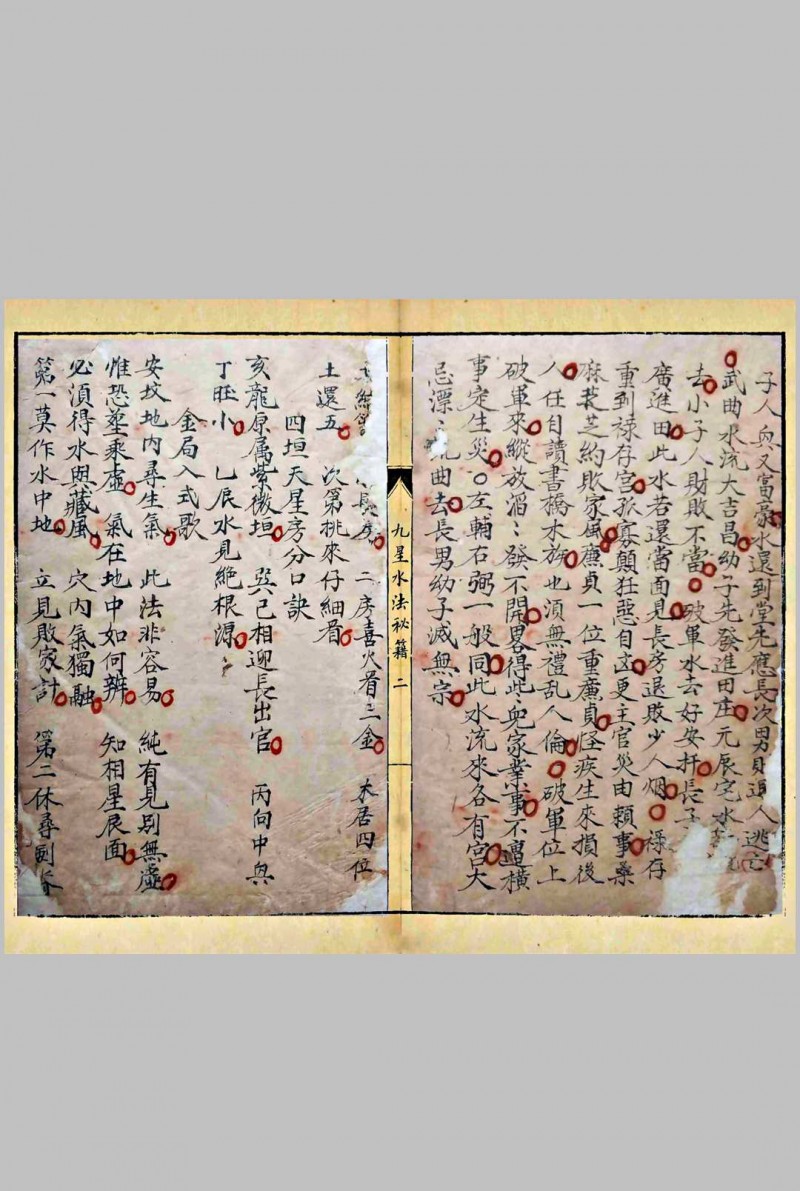 子人興又富豪水還到堂先應長次男 人逃亡
武曲水流大吉昌幼子先發進田庄元辰宅水
去小子人財敗不當破軍水去好安扦長子
廣進田此水若還當面見長房退敗少人烟祿存
重到祿存宮孤寡顛狂惡自凶更主官災由賴事藥
麻 芝約敗家風廉貞一位重廉貞怪疾生來損後
人任自讀書 水族也須無禮乱人倫破軍位上
破軍來縱放滔〻發不開畧得此〻兒家業事不遭橫
事定生災左輔右弼一般同此水流來各有宮大
忌漂〻 曲去長男幼子滅無宗
九星水法秘籍 二
二房喜火看三金 木居四位
土還五 次第挑來仔細看
四垣天星房分口訣
亥龍原属紫微垣 巽己相迎長出官 丙向中興
丁旺小 乙辰水見絶根源
金局入式歌
安坟地内尋生氣 此法非容易 純有見别無虛
惟恐塟乘虛 氣在地中如何辨 知相星辰面
必須得水與藏風 穴内氣獨融
第一莫作水中地 立見敗家計 第二休尋劍脊